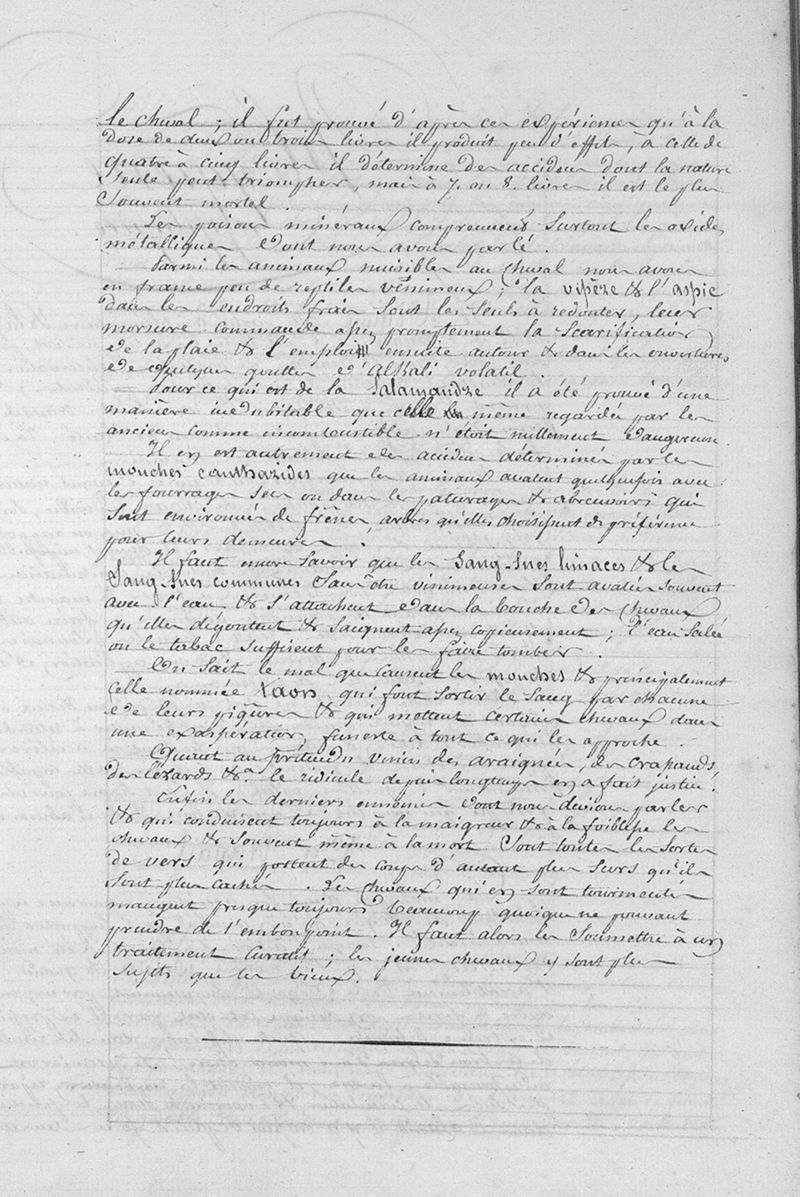 le cheval ; il fut prouvé d'après ces expériences qu'à la
dose de deux ou trois livres il produit peu d'effet, à celle de
quatre à cinq livres il détermine des accidens dont la nature
seule peut triompher, mais à 7. ou 8. livres il est le plus
souvent mortel.
Les poisons minéraux comprennent surtout les oxides
métalliques dont nous avons parlé.
Parmi les animaux nuisibles au cheval nous avons
en france peu de reptiles vénimeux ; la vipère & l'aspic
dans les endroits frais sont les seuls à redouter, leur
morsure commande assez promptement la scarification
de la plaie & l'emploi ensuite autour & dans les ouvertures
de quelques gouttes d'alkali volatil.
Pour ce qui est de la Salamandre il a été prouvé d'une
manière indubitable que celle même regardée par les
anciens comme incombustible n'étoit nullement dangereuse.
Il en est autrement des accidens déterminés par les
mouches cantharides que les animaux avalent quelquefois avec
les fourrages secs ou dans les paturages & abreuvoirs qui
sont environnés de frênes, arbres qu'elles choisissent de préférence
pour leurs demeures.
Il faut encore savoir que les Sang-sues limaces & les
Sang-sues communes sans être vénimeuses sont avalées souvent
avec l'eau & s'attachent dans la bouche des chevaux
qu'elles dégoutent & saignent assez copieusement ; l'eau salée
ou le tabac suffisent pour les faire tomber.
On sait le mal que causent les mouches & principalement
celle nommée Taons qui font sortir le sang par chacune
de leurs piqûres & qui mettent certains chevaux dans
une exaspération funeste à tout ce qui les approche.
Quant au prétendu venin des araignées, des crapauds,
des lézards &a. le ridicule depuis longtemps en a fait justice.
Enfin les derniers ennemis dont nous devions parler
& qui conduisent toujours à la maigreur & à la foiblesse les
chevaux & souvent même à la mort sont toutes les sortes
de vers qui portent des coups d'autant plus surs qu'ils
sont plus cachés. Les chevaux qui en sont tourmentés
mangent presque toujours beaucoup quoique ne pouvant
prendre de l'embonpoint. Il faut alors les soumettre à un
traitement curatif ; les jeunes chevaux y sont plus
sujets que les vieux.